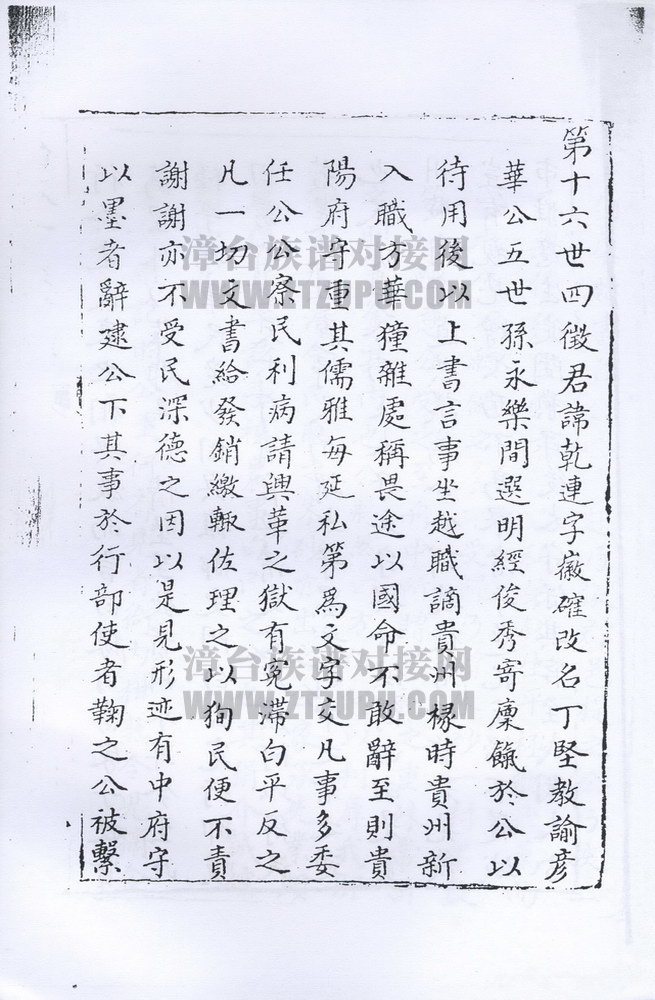 第十六世四徵君諱乾連字徽確改名丁堅教諭彥
華公五世孫永樂間選明經俊秀寄廩餼於公以
待用後以上書言事坐越職謫貴州椽時貴州新
入職方華獞雜處稱畏途以國命不敢辭至則貴
陽府守重其儒雅每延私第爲文字交凡事多委
任公公察民利病請興革之獄有冤滯白平反之
凡一切文書給發銷繳輙佐理之以狥民便不責
謝謝亦不受民深德之因以是見形迹有中府守
以墨者辭逮公下其事於行部使者鞠之公被繫
漳台族谱对接网
WWW.ZTZUPU.COM
漳台族谱对接网
WWW.ZTZUPU.COM